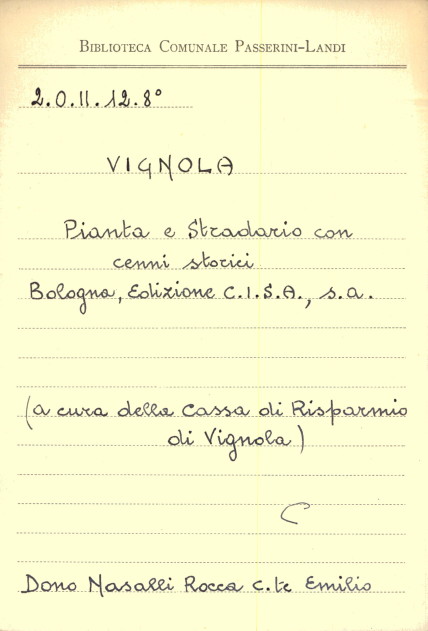 BIBLIOTECA COMUNALE PASSERINI-LANDI
2.O.II.12.8°
VIGNOLA
Pianta e Stradario con
cenni storici
Bologna, Edizione C.I.S.A., s.a.
(a cura della Cassa di Risparmio
di Vignola)
C
Dono Nasalli Rocca C.te Emilio